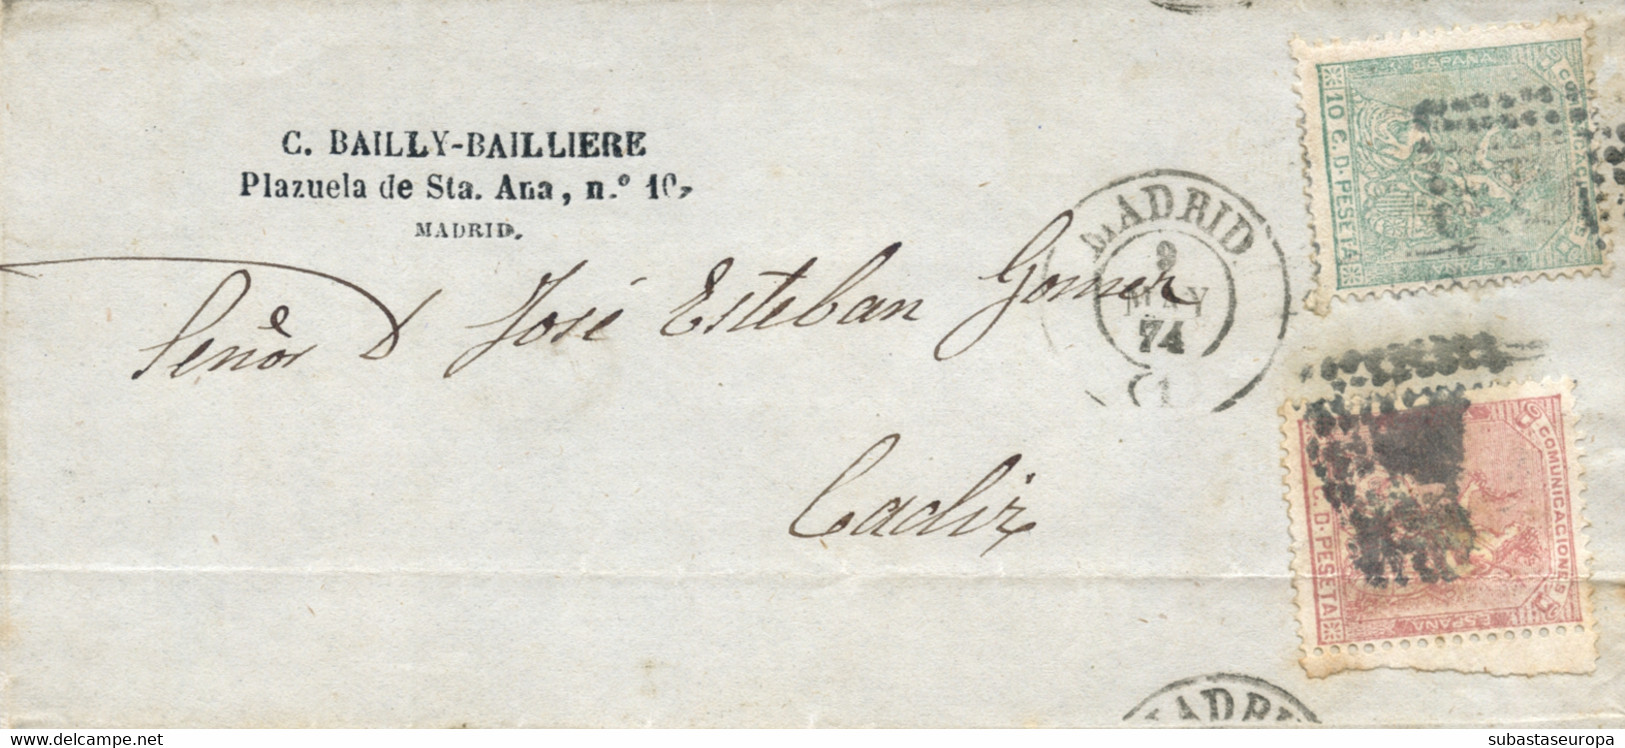 C. BAILLY-BAILLIERE
Plazuela de Sta. Ana, n.º 10,
MADRID.
Señor D José Esteban Gomez
Cadiz
MADRID
9
MAY
74
(1)
ESPAÑA
COMUNICACIONES
10 C. D. PESETA
COMUNICACIONES
C. D. PESETA
ESPAÑA
MADRI
www.delcampe.net
subastaseuropa